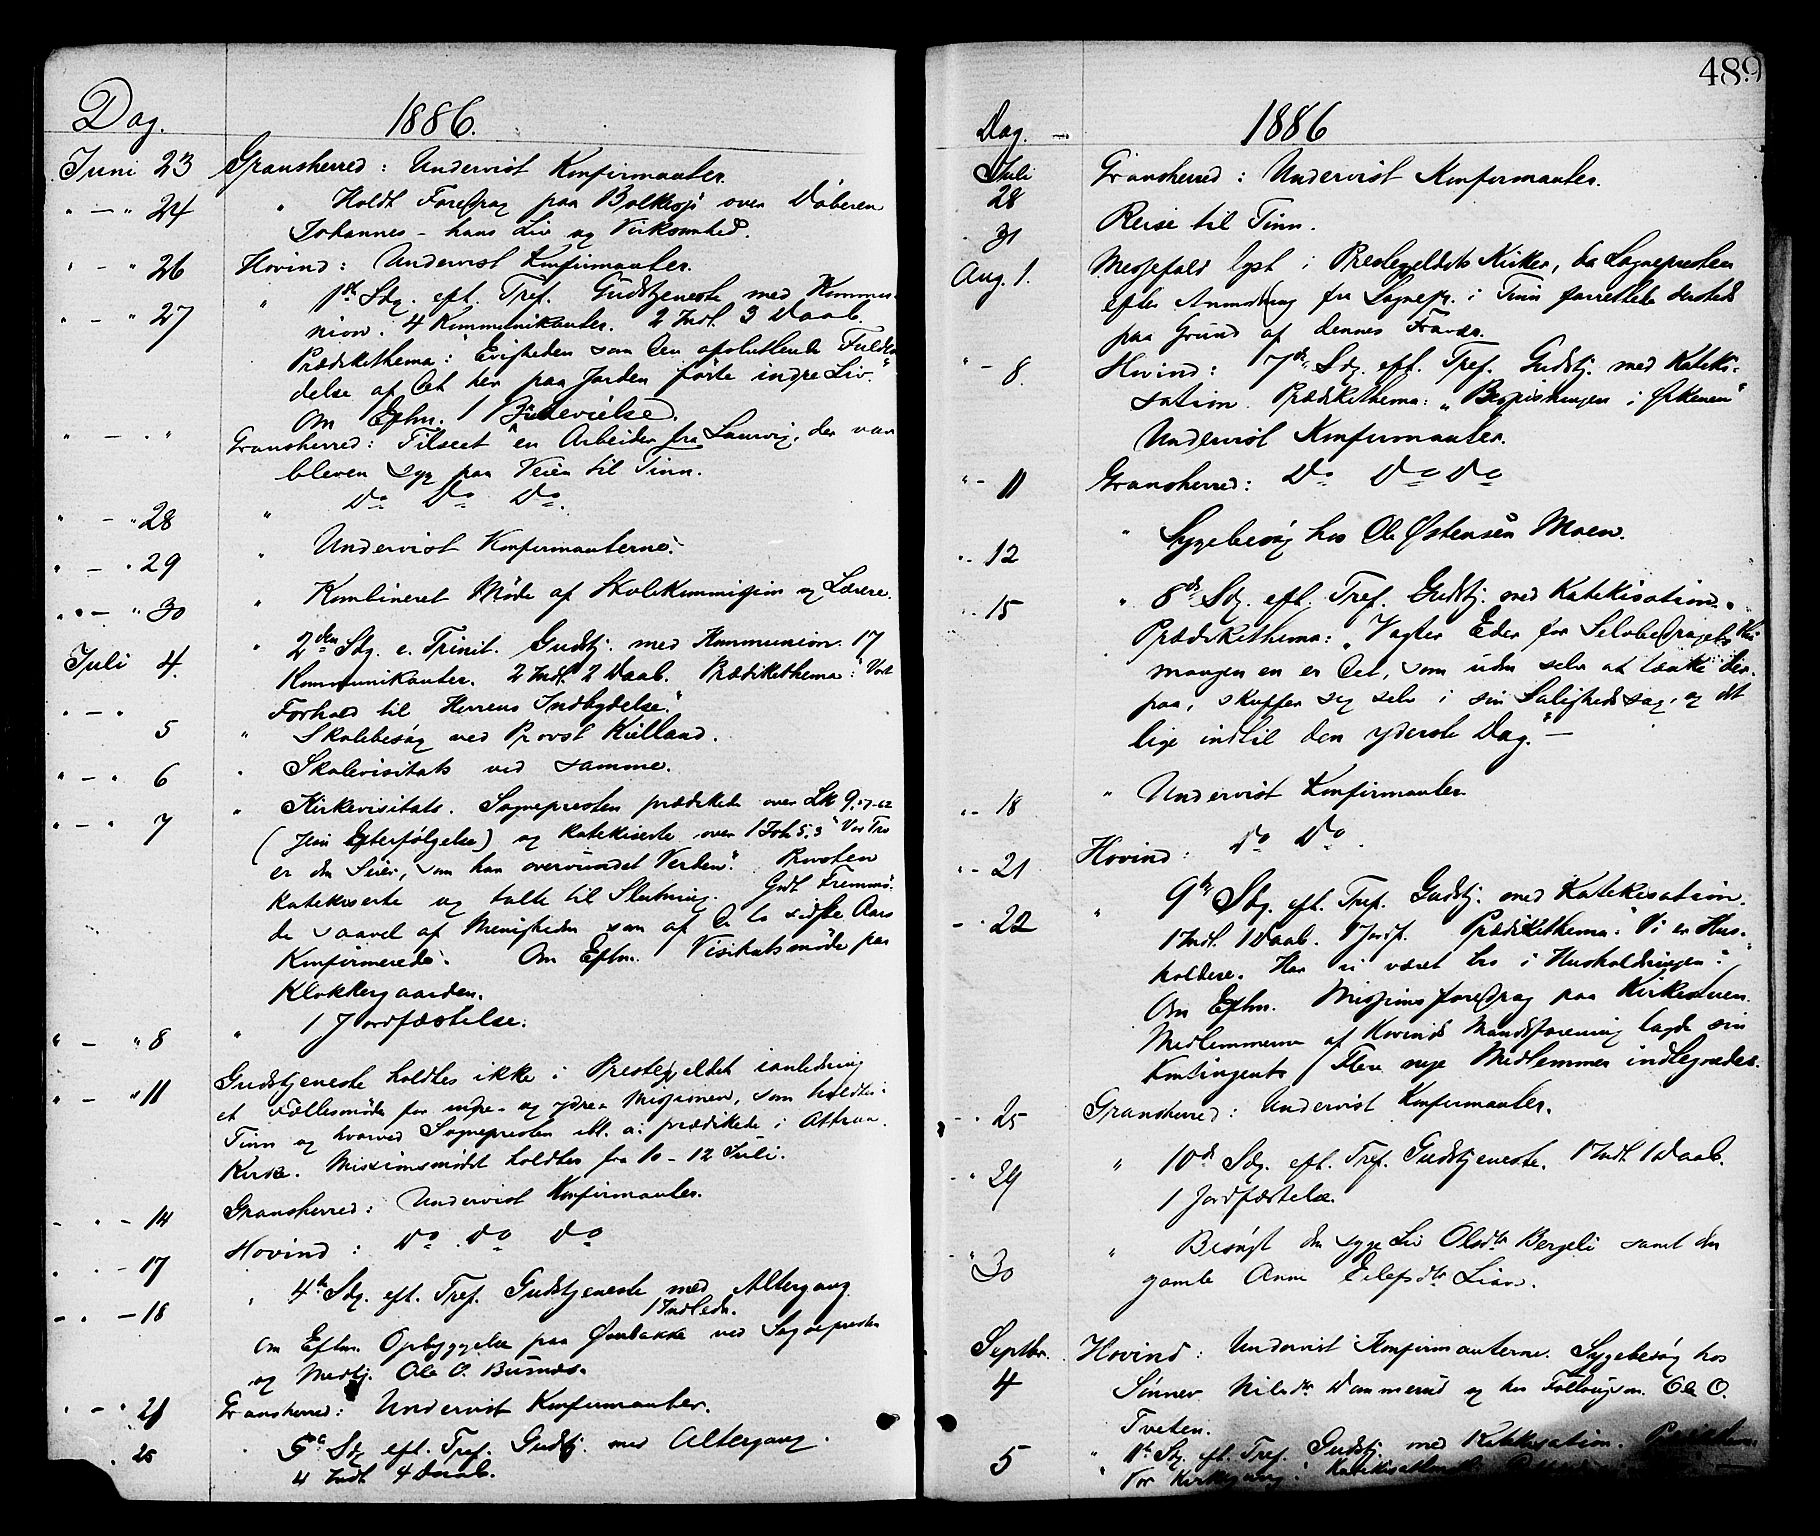 Dag. 1886.
Juni 23 Gransherred: Undervist Konfirmanter.
" — " 24 " Holdt Foredrag paa Bolkesjø over Døberen
Johannes – hans Liv og Virksomhed.
" — " 26 Hovind: Undervist Konfirmanter.
" — " 27 " 1ste Sdg. eft. Tref. Gudstjeneste med Kommu-
nion. 4 Kommunikanter. 2 Indl. 3 Daab.
Prædikethema: "Evigheden som den afsluttende Fulden-
delse af det her paa Jorden førte indre Liv."
Om Eftm. 1 Brudevielse.
" — " " Gransherred: Tilseet en Arbeider fra Laurvig, der var
bleven syg paa Veien til Tinn.
" — " 28 " Do Do Do.
" — " 29 " Undervist Konfirmanterne.
" — " 30 " Kombineret Møde af Skolekommission og Lærere.
Juli 4. " 2den Sdg. e. Trinit. Gudstj. med Kommunion. 17
Kommunikanter. 2 Indl. 2 Daab. Prædikethema: "Vort
Forhold til Herrens Indbydelse."
" — " 5 " Skolebesøg ved Provst Kielland.
" — " 6 " Skolevisitats ved samme.
" — " 7 " Kirkevisitats. Sognepresten prædikede over Lk 9.57-62
(Jesu Efterfølgelse) og katekiserte over 1 Joh 5.3 "Vor Tro
er den Seier, som har overvundet Verden". Provsten
katekiserte og talte til Slutning. Godt Fremmø-
de saavel af Menigheden som af de to sidste Aars
Konfirmerede. Om Eftm. Visitatsmøde paa
Klokkergaarden.
" — " 8 " 1 Jordfæstelse.
" — " 11 Gudstjeneste holdtes ikke i Prestegjeldet ianledning
et Fællesmøde for indre- og ydre Missionen, som holdtes i
Tinn og hvorved Sognepresten bl. a. prædikede i Attraa
Kirke. Missionsmødet holdtes fra 10 – 12 Juli.
" — 14 Gransherred: Undervist Konfirmanter.
" — 17 Hovind: Do Do Do
" — 18 " 4de Sdg. eft. Tref. Gudstjeneste med Altergang
1 Indledn.
Om Eftm. Opbyggelse paa ved Sognepresten
og Medhj. Ole O. Bu
" — " 21 Gransherred: Undervist Konfirmanter.
" 25 " 5te Sdg eft. Tref. Gudstj. med Altergang.
4 Indl. 4 Daab.
489
Dag. 1886
Juli
28 Gransherred: Undervist Konfirmanter.
" 31 Reise til Tinn.
Aug. 1. Messefald lyst i Prestegjeldets Kirker, da Sognepresten
efter Anmodning fra Sognepr. i Tinn forrettede dersteds
paa Grund af dennes Fravær.
" - 8. Hovind: 7de Sdg. eft. Tref. Gudstj. med Kateki-
sation. Prædikethema: "Bespisningen i Ørkenen"
Undervist Konfirmanter.
" - 11 Gransherred: Do Do Do
" - 12 " Sygebesøg hos Ole Østensen Moen.
" - 15 " 8de Sdg. eft. Tref. Gudstj. med Katekisation.
Prædikethema: "Vogter Eder for Selvbedraget, thi
mangen en er det, som uden selv at tænke der-
paa, skuffer sig selv i sin Salighedssag, og det
lige indtil den yderste Dag." —
" - 18 " Undervist Konfirmanter
" - 21 Hovind: Do Do.
" - 22 " 9de Sdg. eft. Tref. Gudstj. med Katekisation.
1 Indl. 1 Daab. 1 Jordf. Prædikethema: "Vi er Hus-
holdere. Har vi været tro i Husholdningen?"
Om Eftm. Missionsforedrag paa Kirkestuen.
Medlemmerne af Hovinds Mandsforening lagde sin
Kontingent. Flere nye Medlemmer indtegnedes.
" - 25 Gransherred: Undervist Konfirmanter.
" - 29 " 10de Sdg. eft. Tref. Gudstjeneste. 1 Indl. 1 Daab.
1 Jordfæstelse.
" 30 " Besøgt den syge Liv Olsdtr Bergeli samt den
gamle Anne Eilefsdtr Lien.
Septbr. 4 Hovind: Undervist Konfirmanterne. Sygebesøg hos
Sønnev Nilsdtr Dammerud og hos Ole O.
Tveten.
5 " 11te Sdg. eft. Tref. Gudstj. med Katekisation.
Vor Kirkegang.